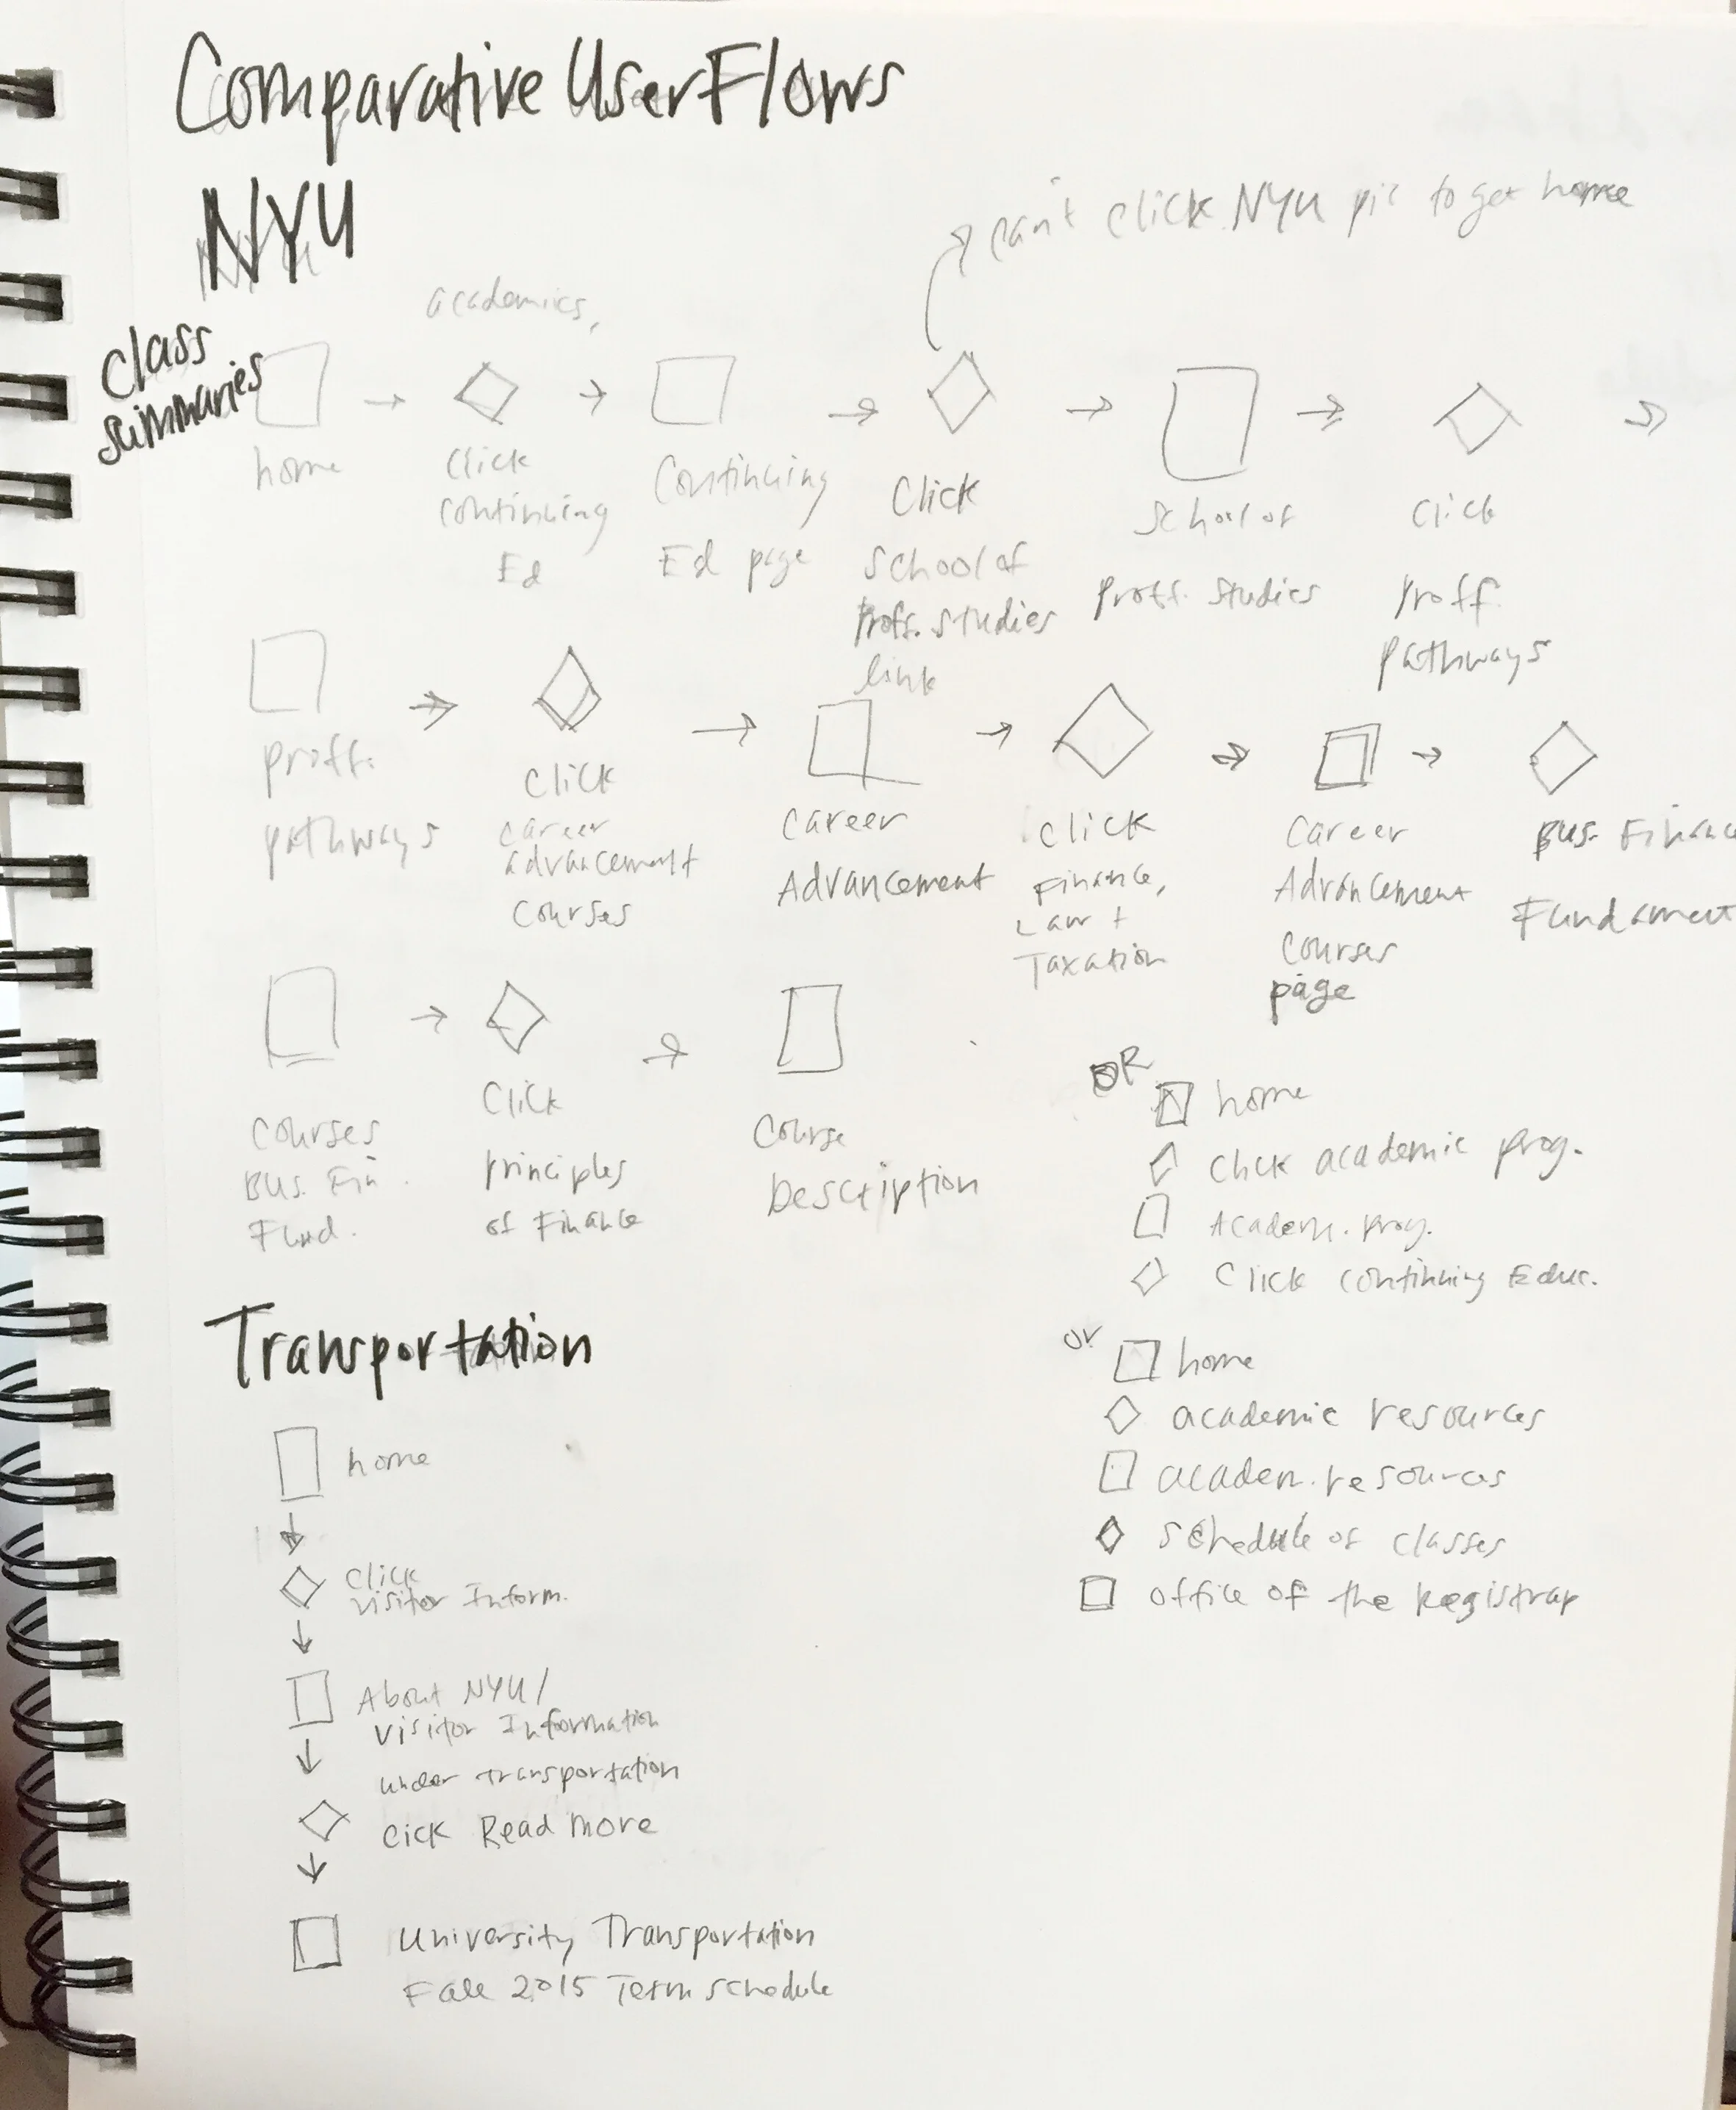 Comparative User Flows
NYU
can't click NYU pic to get home
academics,
Class
summaries
home
Click
continuing
Ed
Continuing
Ed page
Click
School of
Proff. Studies
link
School of
Proff. Studies
Click
Proff.
pathways
proff.
pathways
Click
career
advancement
courses
Career
Advancement
Click
Finance,
Law +
Taxation
Career
Advancement
Courses
page
Bus. Finance
Fundament
Courses
Bus. Fin.
Fund.
Click
principles
of Finance
Course
Description
OR
home
Click academic prog.
Academ. prog.
Click continuing Educ.
or
home
academic resources
academ. resources
schedule of classes
office of the Registrar
Transportation
home
Click
visitor Inform.
About NYU/
visitor Information
under transportation
Cick Read more
University Transportation
Fall 2015 Term schedule